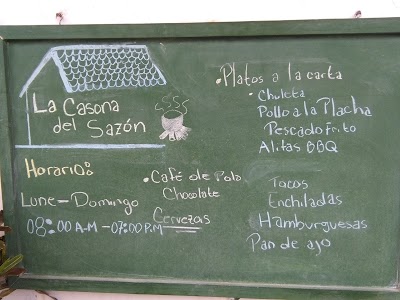 La Casona
del Sazón
Horario:
Lune-Domingo
08:00 A.M-07:00 P.M
• Café de Palo
Chocolate
Cervezas
• Platos a la carta
• Chuleta
Pollo a la Placha
Pescado Frito
Alitas BBQ
Tacos
Enchiladas
Hamburguesas
Pan de ajo